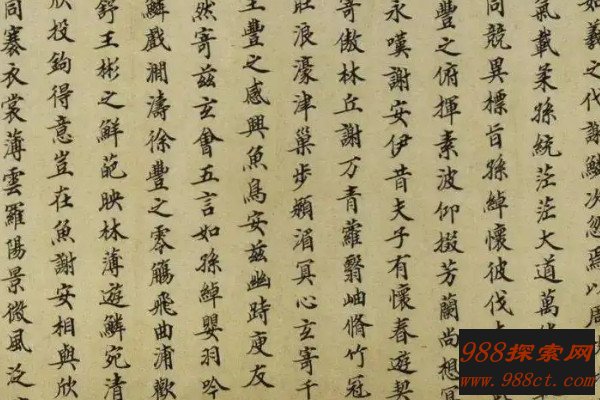 如羲之代謝鱗次忽焉以周
氣載柔孫統茫茫大道萬
同競異標旨孫綽懷彼伐
豐之俯揮素波仰掇芳蘭尚想冥
永嘆謝安伊昔夫子有懷春遊契
寄傲林丘謝万青蘿翳岫脩竹冠
莊浪濠津巢步潁湄冥心玄寄千
王豐之感興魚鳥安茲幽跱庾友
然寄茲玄會五言如孫綽嬰羽吟
鱗戲澗濤徐豐之零觴飛曲浦歡
舒王彬之鮮葩映林薄遊鱗宛清
欣投鉤得意豈在魚謝安相與欣
同褰衣裳薄雲羅陽景微風泛
988探索网
www.988ct.com